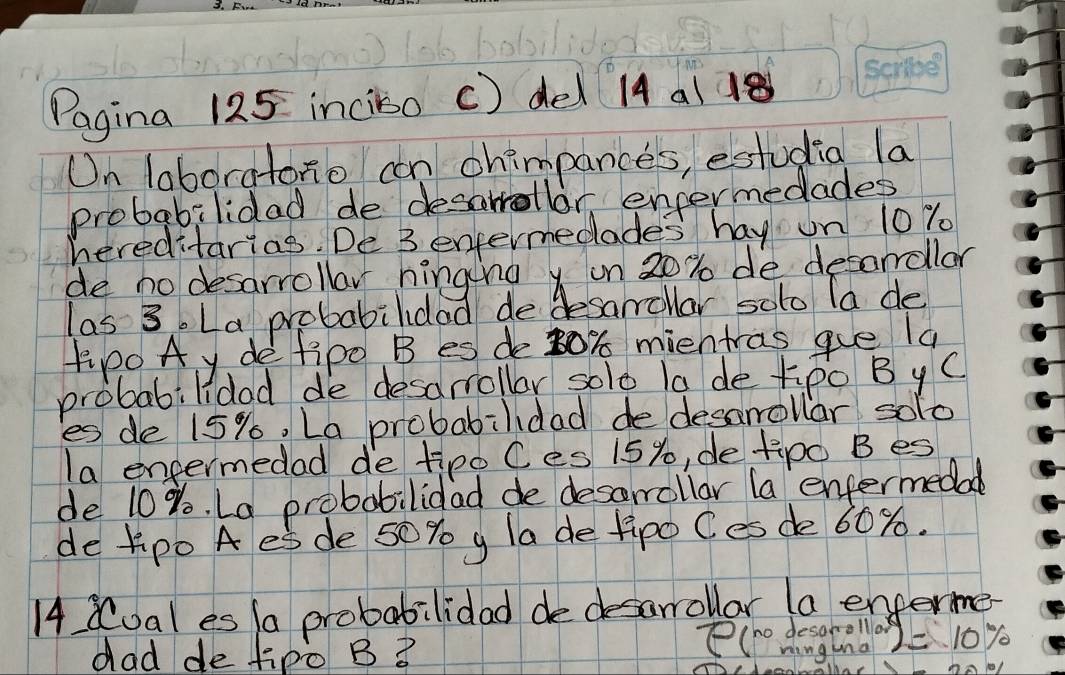 Scribe
Pagina 125 inciso c) del 14 al 18
Un laboratorio con chimpancés, estudia la
probabilidad de desarrollar enfermedades
hereditarias. De 3 enfermedades hay un 10%
de no desarrollar ninguna y un 20% de desarrollar
las 3. La probabilidad de desarrollar solo la de
tipo A y de tipo B es de 10% mientras que la
probabilidad de desarrollar solo la de tipo B y C
es de 15%. La probabilidad de desarrollar solo
la enfermedad de tipo C es 15%, de tipo B es
de 10%. La probabilidad de desarrollar la enfermedad
de tipo A es de 50% y la de tipo C es de 60%.
14_ ¿Cual es la probabilidad de desarrollar la enferme-
dad de tipo B?
P(no desarrollar ninguna) = 10%